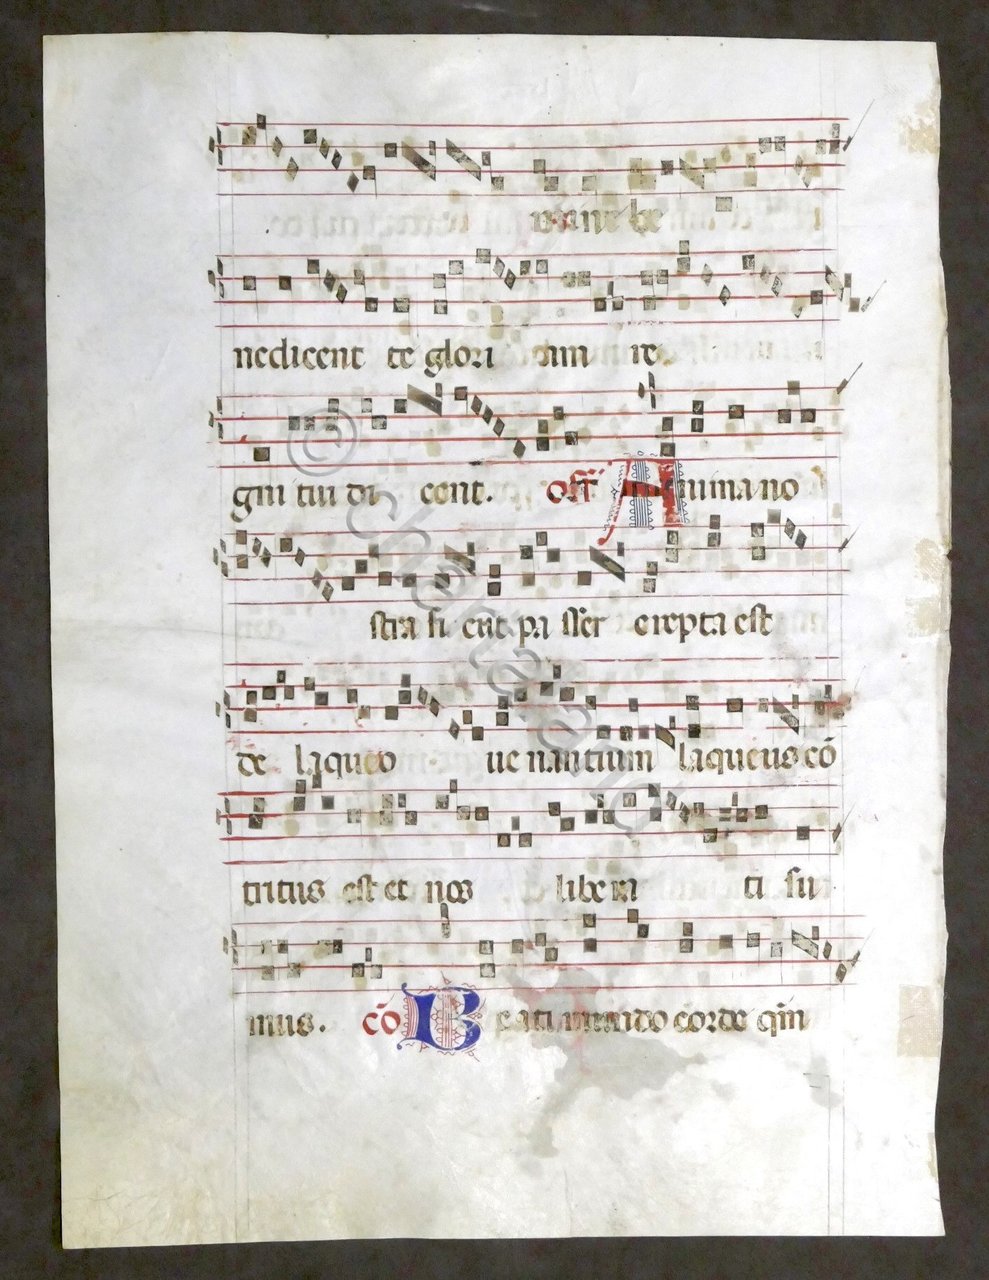 ne be
nedicent te glori am re
gni tui di cent. off Anima no
stra si cut pa sser erepta est
de laqueo ue nantium laqueus cō
tritus est et nos libera ti su
mus. cō Beati mundo corde
© chartaland